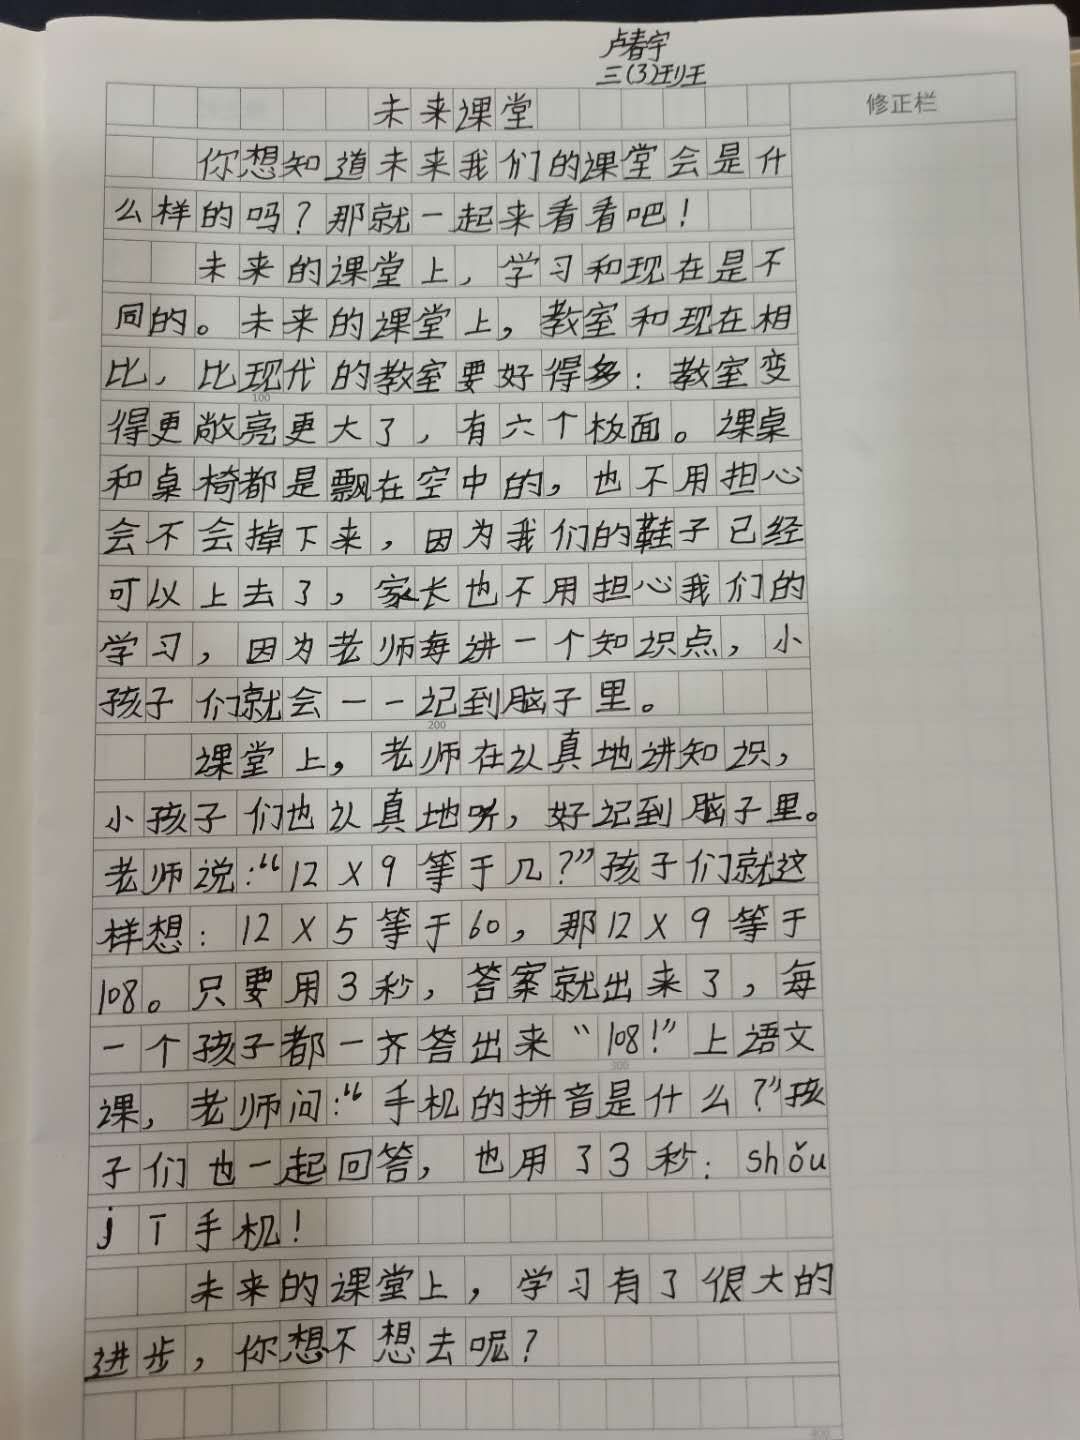 卢春宇
三(3)班
修正栏
未来课堂
你想知道未来我们的课堂会是什
么样的吗？那就一起来看看吧！
未来的课堂上，学习和现在是不
同的。未来的课堂上，教室和现在相
比，比现代的教室要好得多：教室变
100
得更敞亮更大了，有六个板面。课桌
和桌椅都是飘在空中的，也不用担心
会不会掉下来，因为我们的鞋子已经
可以上去了，家长也不用担心我们的
学习，因为老师每讲一个知识点，小
孩子们就会一一记到脑子里。
200
课堂上，老师在认真地讲知识，
小孩子们也认真地听，好记到脑子里。
老师说：“12×9等于几？”孩子们就这
样想：12×5等于60，那12×9等于
108。只要用3秒，答案就出来了，每
一个孩子都一齐答出来“108！”上语文
300
课，老师问：“手机的拼音是什么？”孩
子们也一起回答，也用了3秒：shǒu
jī手机！
未来的课堂上，学习有了很大的
进步，你想不想去呢？
400